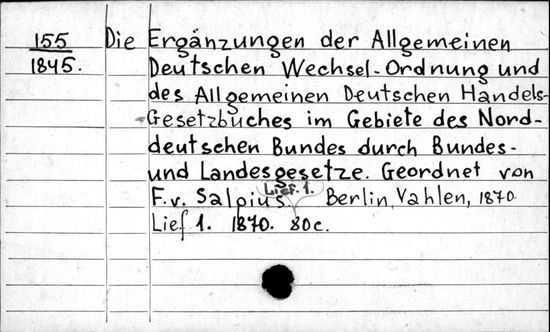 155 Die Ergänzungen der Allgemeinen
1845. Deutschen Wechsel-Ordnung und
des Allgemeinen Deutschen Handels-
Gesetzbuches im Gebiete des Nord-
deutschen Bundes durch Bundes-
und Landesgesetze. Geordnet von
F. v. Salpius. Lief. 1. Berlin, Vahlen, 1870.
Lief 1. 1870. 80c.